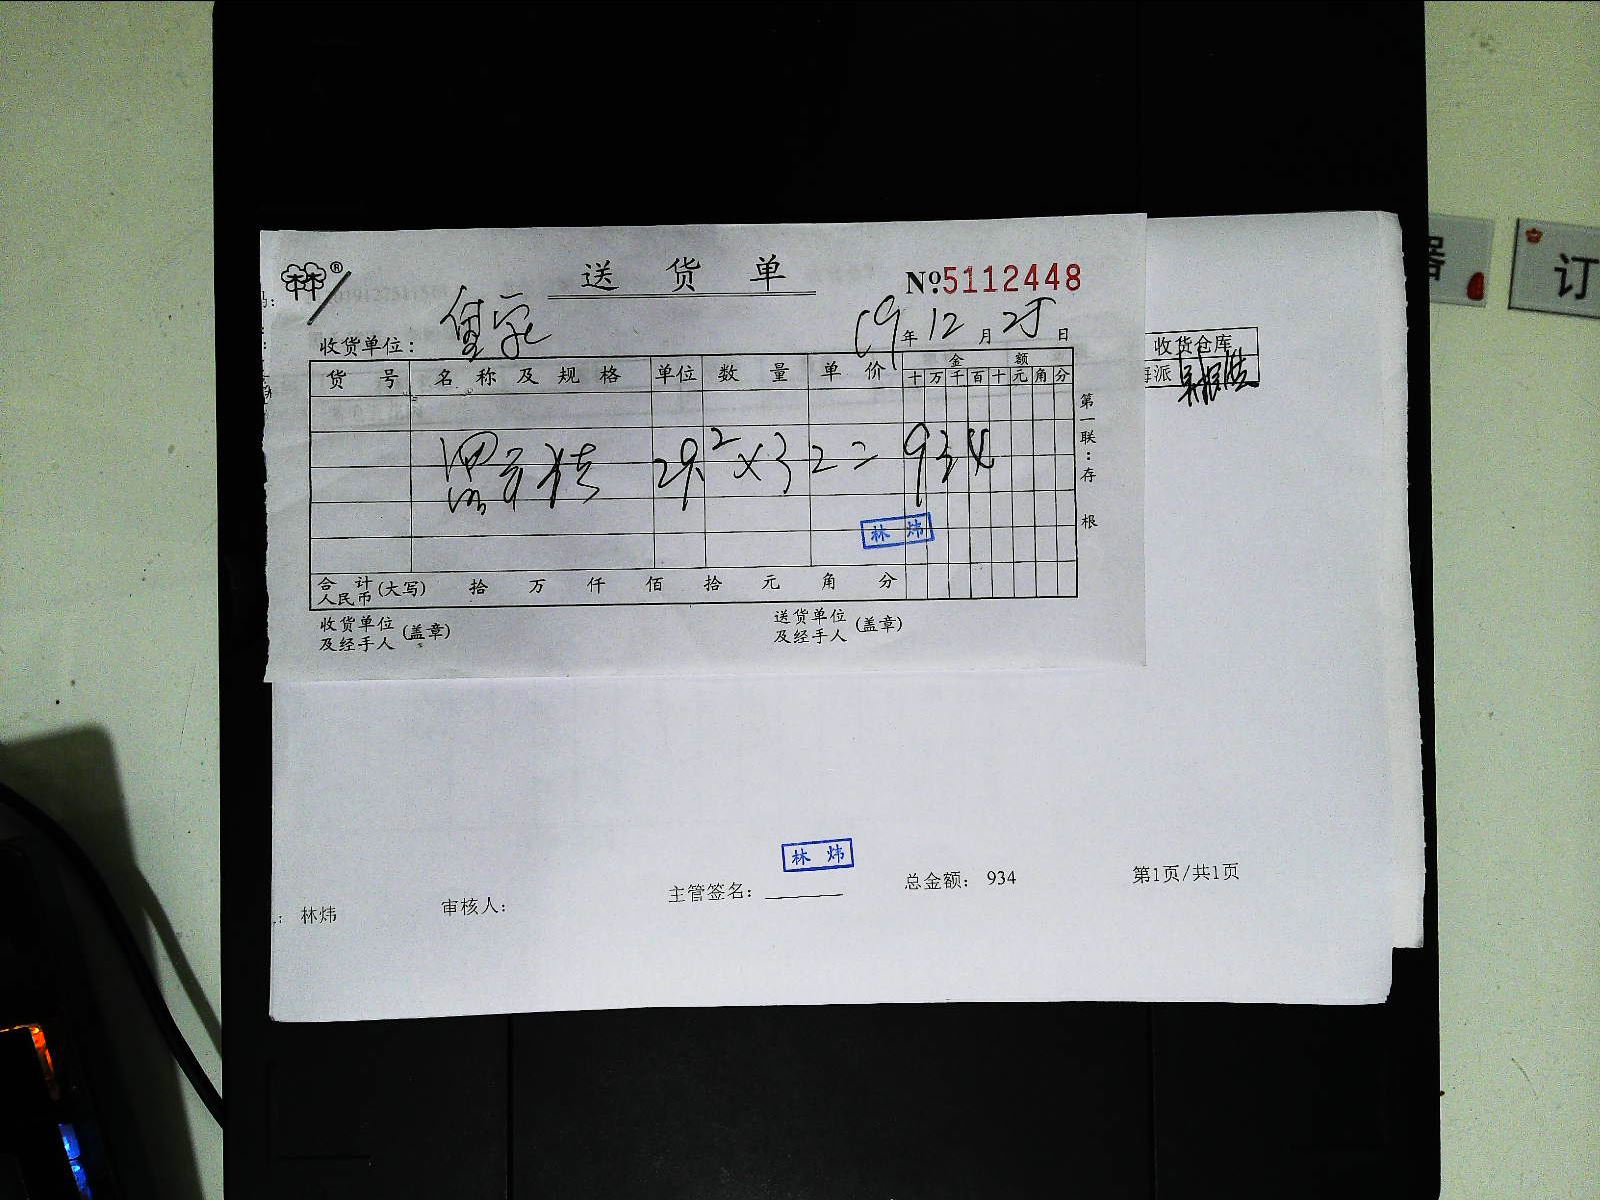 林林®
送 货 单
№5112448
收货单位:
19年12月25日
货 号 名 称 及 规 格 单位 数 量 单 价 金 额
十 万 千 百 十 元 角 分
29.2×32=934
林 炜
合 计
人民币
(大写) 拾 万 仟 佰 拾 元 角 分
收货单位
及经手人
(盖章)
送货单位
及经手人
(盖章)
第一联:存根
收货仓库
海派
林 炜
林炜
审核人:
主管签名:
总金额: 934
第1页/共1页
器
订